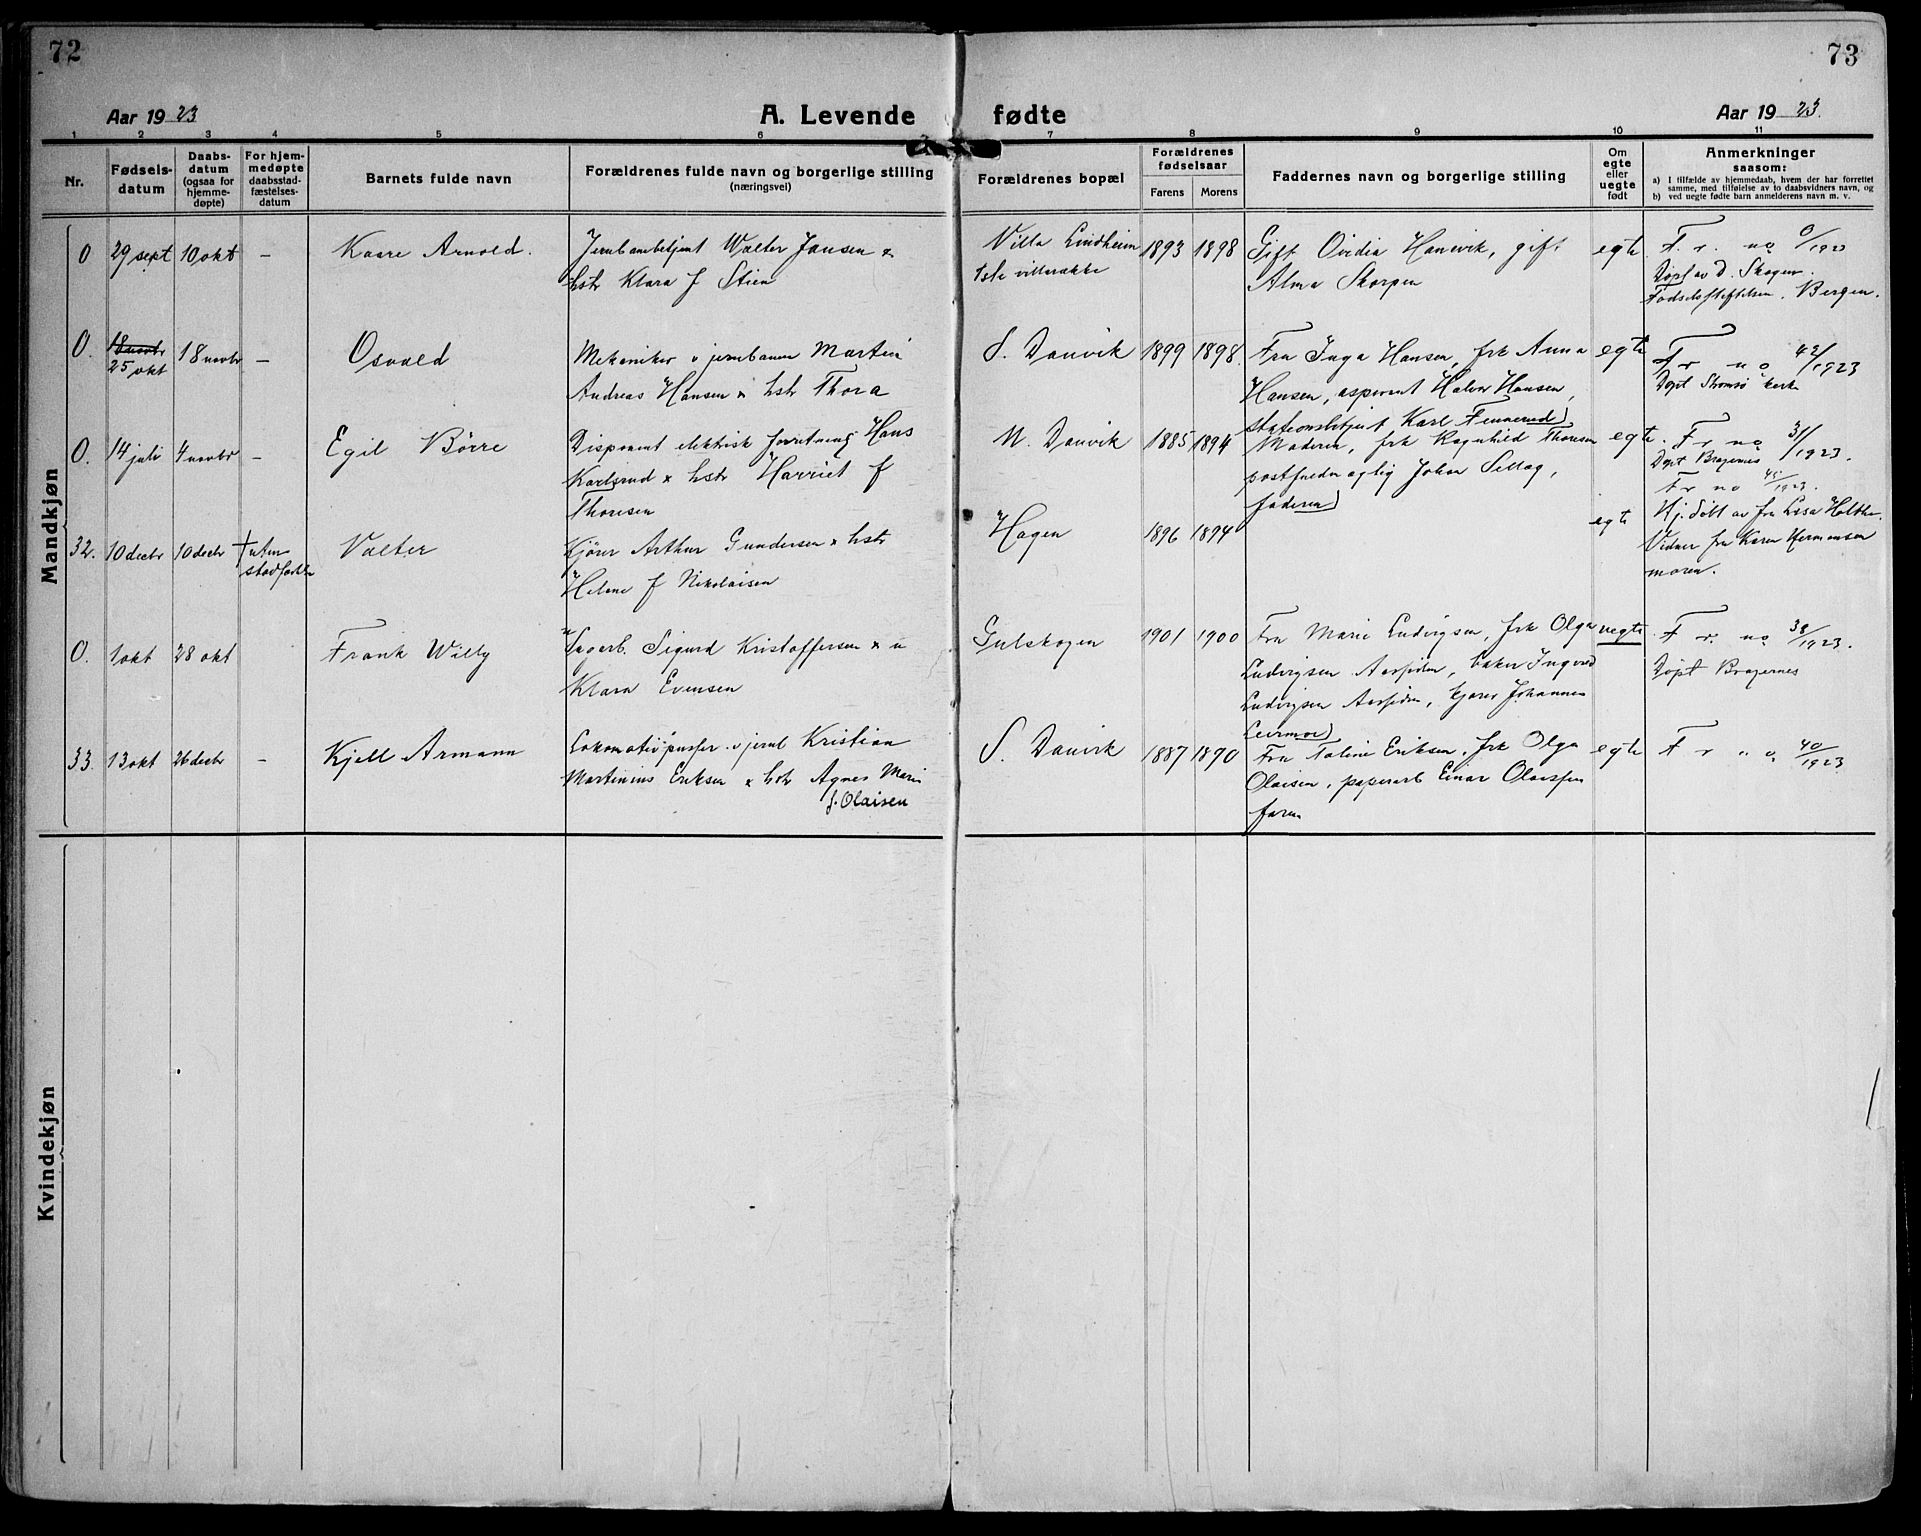 72
73
Aar 1923
A. Levende
fødte
Aar 1923.
1 2 3 4 5 6 7 8 9 10 11
Nr.
Fødsels-
datum
Daabs-
datum
(ogsaa for
hjemme-
døpte)
For hjem-
medøpte
daabsstad-
fæstelses-
datum
Barnets fulde navn
Forældrenes fulde navn og borgerlige stilling
(næringsvei)
Forældrenes bopæl
Forældrenes
fødselsaar
Farens Morens
Faddernes navn og borgerlige stilling
Om
egte
eller
uegte
født
Anmerkninger
saasom:
a) I tilfælde av hjemmedaab, hvem der har forrettet
samme, med tilføielse av to daabsvidners navn, og
b) ved uegte fødte barn anmelderens navn m. v.
Mandkjøn
0 29 sept 10 okt — Kaare Arnold. Jernbanebetjent Walter Jansen &
hstr Klara f Stien
Villa Lindheim
1ste villarække
1893 1898 Gift Ovidia Hanevik, gift
Alma Skorpen
egte F. r. no 0/1923
Døpt av D. Skagen.
Fødselsstiftelsen, Bergen.
0. 18 novbr
25 okt 18 novbr — Osvald Mekaniker v jernbanen Martin
Andreas Hansen & hstr Thora
S. Danvik 1899 1898. Fru Inga Hansen, frk Anna
Hansen, aspirant Halvor Hansen,
stationsbetjent Karl Finnerud
egte F r no 42/1923
Døpt Strømsø kirke
0. 14 juli 4 novbr — Egil Børre Disponent elektrisk forretning Hans
Karlsrud & hstr Harriet f
Thoresen
N. Danvik 1885 1894 Moderen, frk Ragnhild Thoresen
Johan
faderen
egte. F r no 31/1923.
Døpt Bragernes
32. 10 decbr 10 decbr † uten
stadfæst Valter Kjører Arthur Gundersen & hstr
Helene f Nikolaisen
Hagen 1896 1894
egte F r no 45/1923.
Hj. døbt av fru Lisa Holthe.
Vidner fru Karen Hermansen
moren.
0. 1 okt 28 okt Frank Willy Sagarb. Sigurd Kristoffersen & u
Klara Evensen
Gulskogen 1901 1900 Fru Marie Ludvigsen, frk Olga
Ludvigsen Aassiden, baker Ingvald
Ludvigsen Aassiden, kjører Johannes
Leirmo
uegte F r. no 38/1923.
Døpt Bragernes
33. 13 okt 26 decbr — Kjell Armann Lokomotivpusser v jernb Kristian
Martinius Eriksen & hstr Agnes Marie
f. Olaisen
S. Danvik 1887 1890 Fru Taline Eriksen, frk Olga
Olaisen, papirarb Einar Olaissen
faren
egte F r " o 40/1923
Kvindekjøn